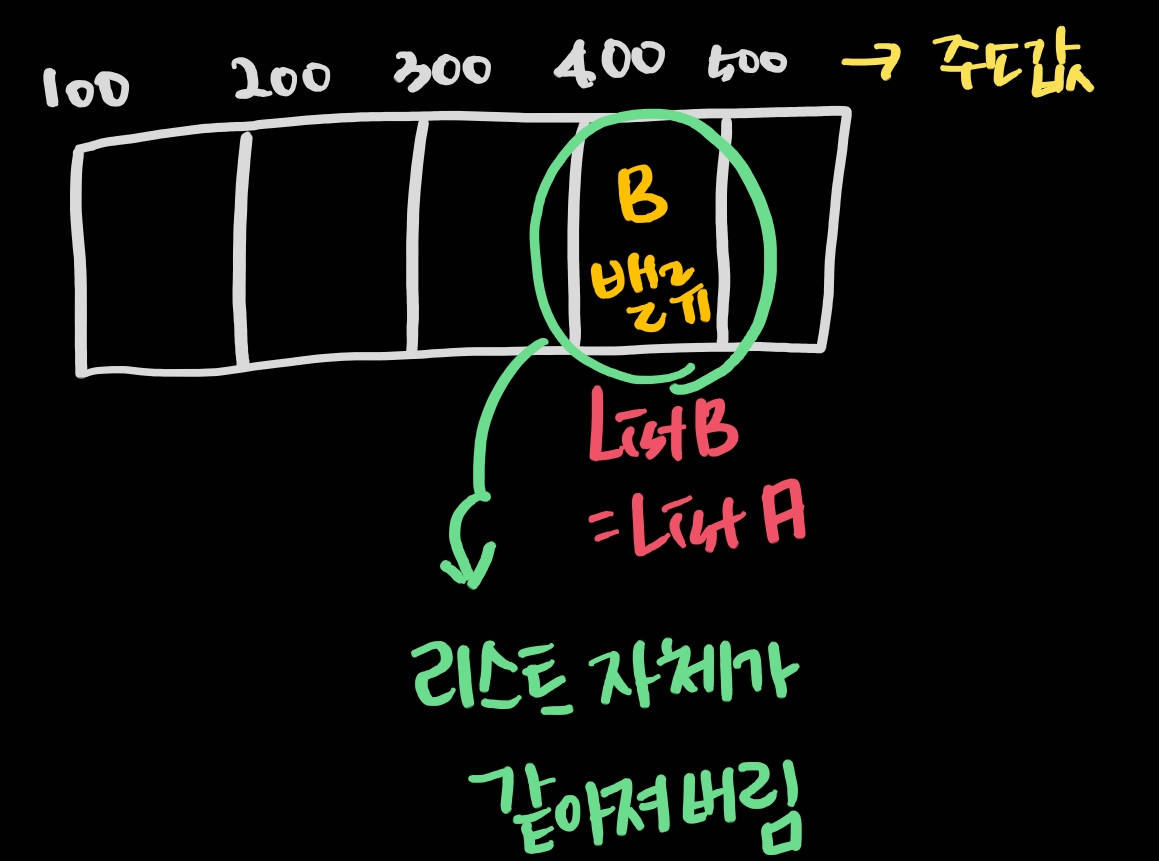 100 200 300 400 500 → 주소값
B
밸류
List B
= List A
리스트 자체가
같아져버림